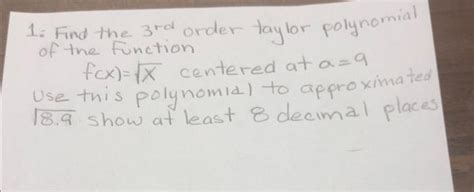 1. Find the 3rd order taylor polynomial
of the function
f(x)=√x centered at a=9
Use this polynomial to approximated
√8.9 show at least 8 decimal places